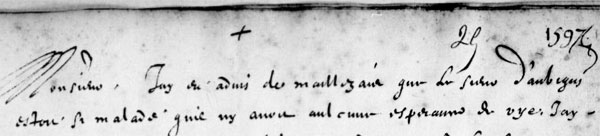 + 1597
Monsieur. Jay eu advis de maillezais que le sieur d'aubigni
estoit si malade quil ny avoit aulcune esperance de vye. Jay